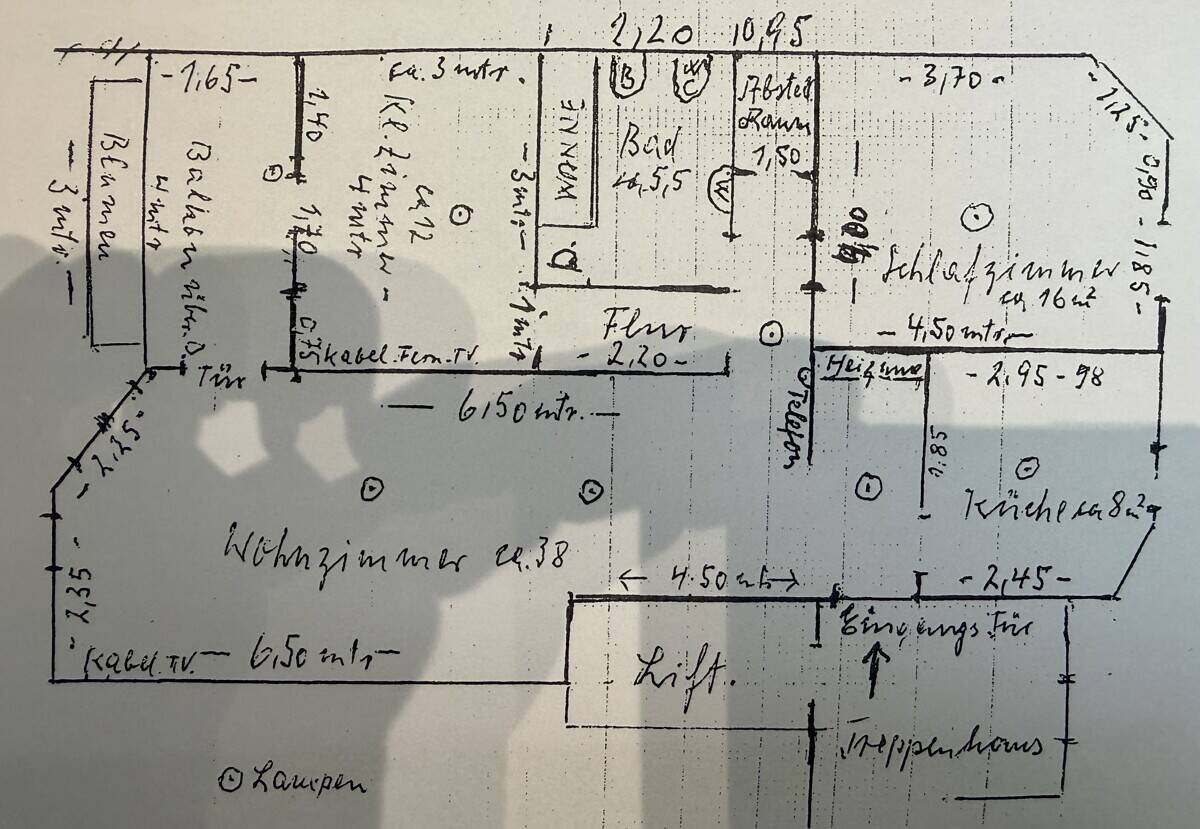 2,20 0,95
-1,65-
ca. 3 mtr.
-3,70-
-1,25-
1,40
Kl. Zimmer -
ca 12
4 mtr
WANNE
B
WC
Bad
ca, 5,5
Abstell
Raum
1,50
W
0,90
-1,85-
Blumen
- 3 mtr. -
Balkon über.D
4 mtr
1,70
0,75
- 3 mtr -
1 mtr
Schlafzimmer
ca 16 m²
- 4,50 mtr. -
Flur
- 2,20 -
Kabel. Fern. TV.
Tür
Heizung
- 2,95-98
- 6,50 mtr. -
Telefon
1,85
- 2,25 -
Küche ca 8 m²
Wohnzimmer ca. 38
- 2,35 -
4.50 mtr
- 2,45 -
Eingangs Tür
Kabel. TV. - 6,50 mtr -
Lift.
Treppenhaus
Lampen